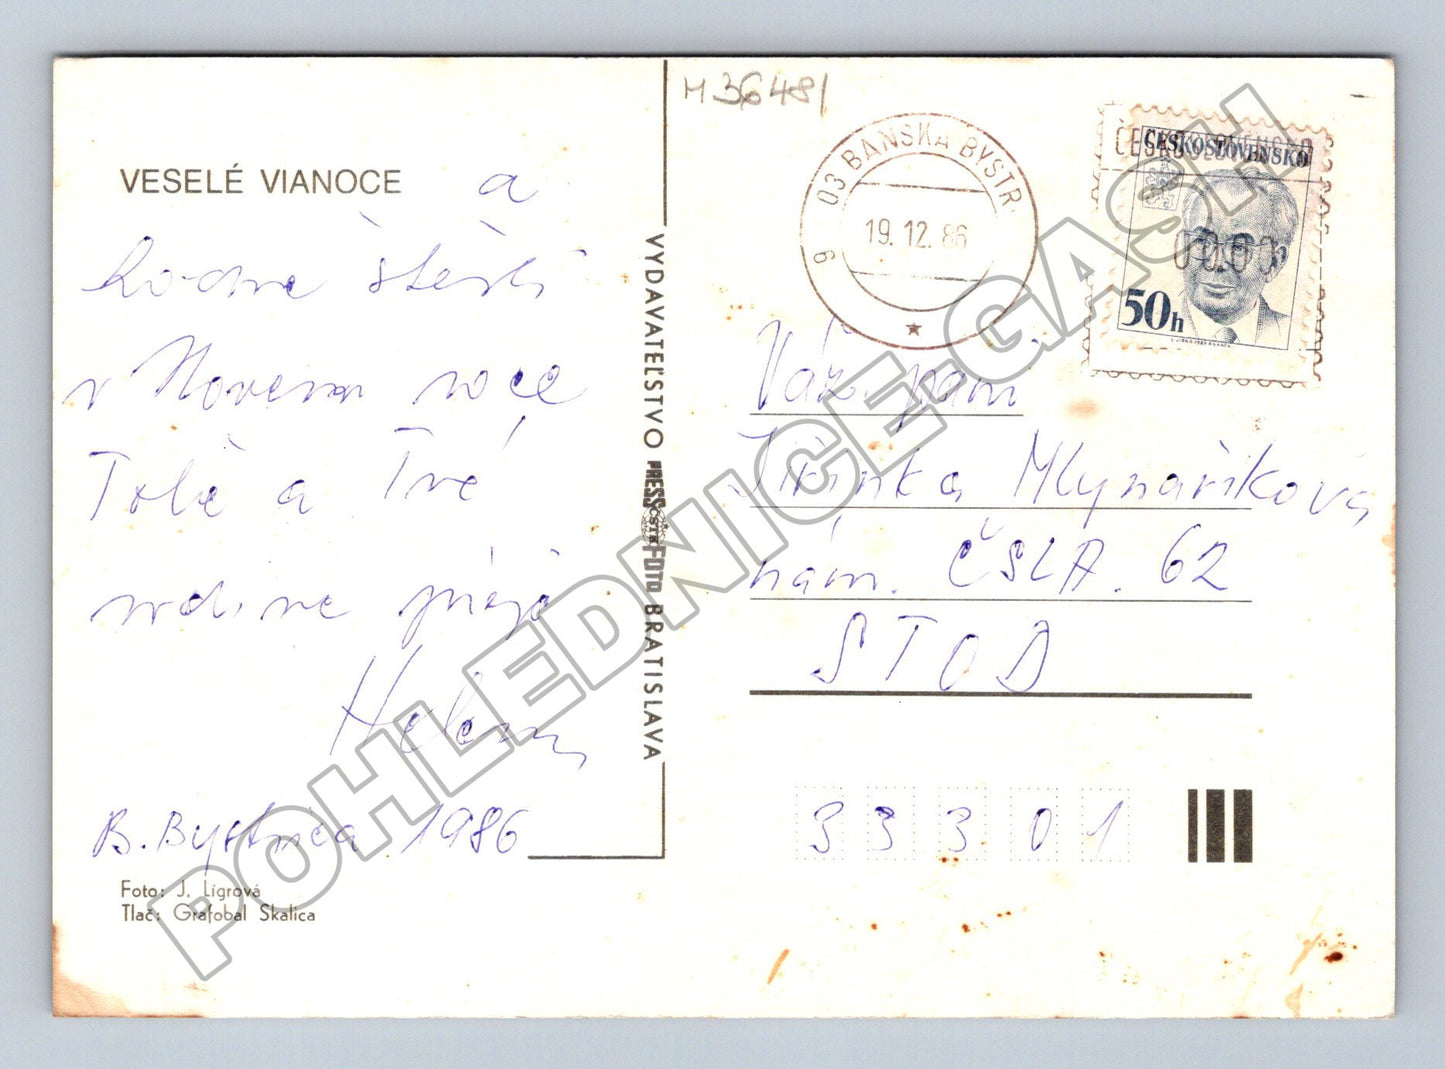 VESELÉ VIANOCE a
hodně štěstí
v Novém roce
Tobě a Tvé
rodině přeje
Helena
B. Bystrica 1986
Foto: J. Lígrová
Tlač: Grafobal Skalica
VYDAVATEĽSTVO PRESSFOTO BRATISLAVA
ČSTK
M 36481
03 BANSKÁ BYSTR
19. 12. 86
6
ČESKOSLOVENSKO
50h
Váž. paní
Jiřinka Mlynaříková
nám. ČSLA. 62
STOD
33301
POHLEDNICE-GASH